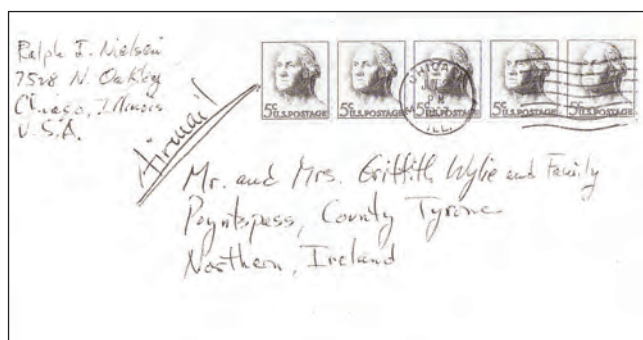 Ralph I. Nielsen
7528 N. Oakley
Chicago, Illinois
U.S.A.
Airmail
5¢ U.S. POSTAGE
5¢ U.S. POSTAGE
5¢ U.S. POSTAGE
5¢ U.S. POSTAGE
5¢ U.S. POSTAGE
CHICAGO
ILL.
Mr. and Mrs. Griffith Wylie and Family
Poyntzpass, County Tyrone
Northern, Ireland